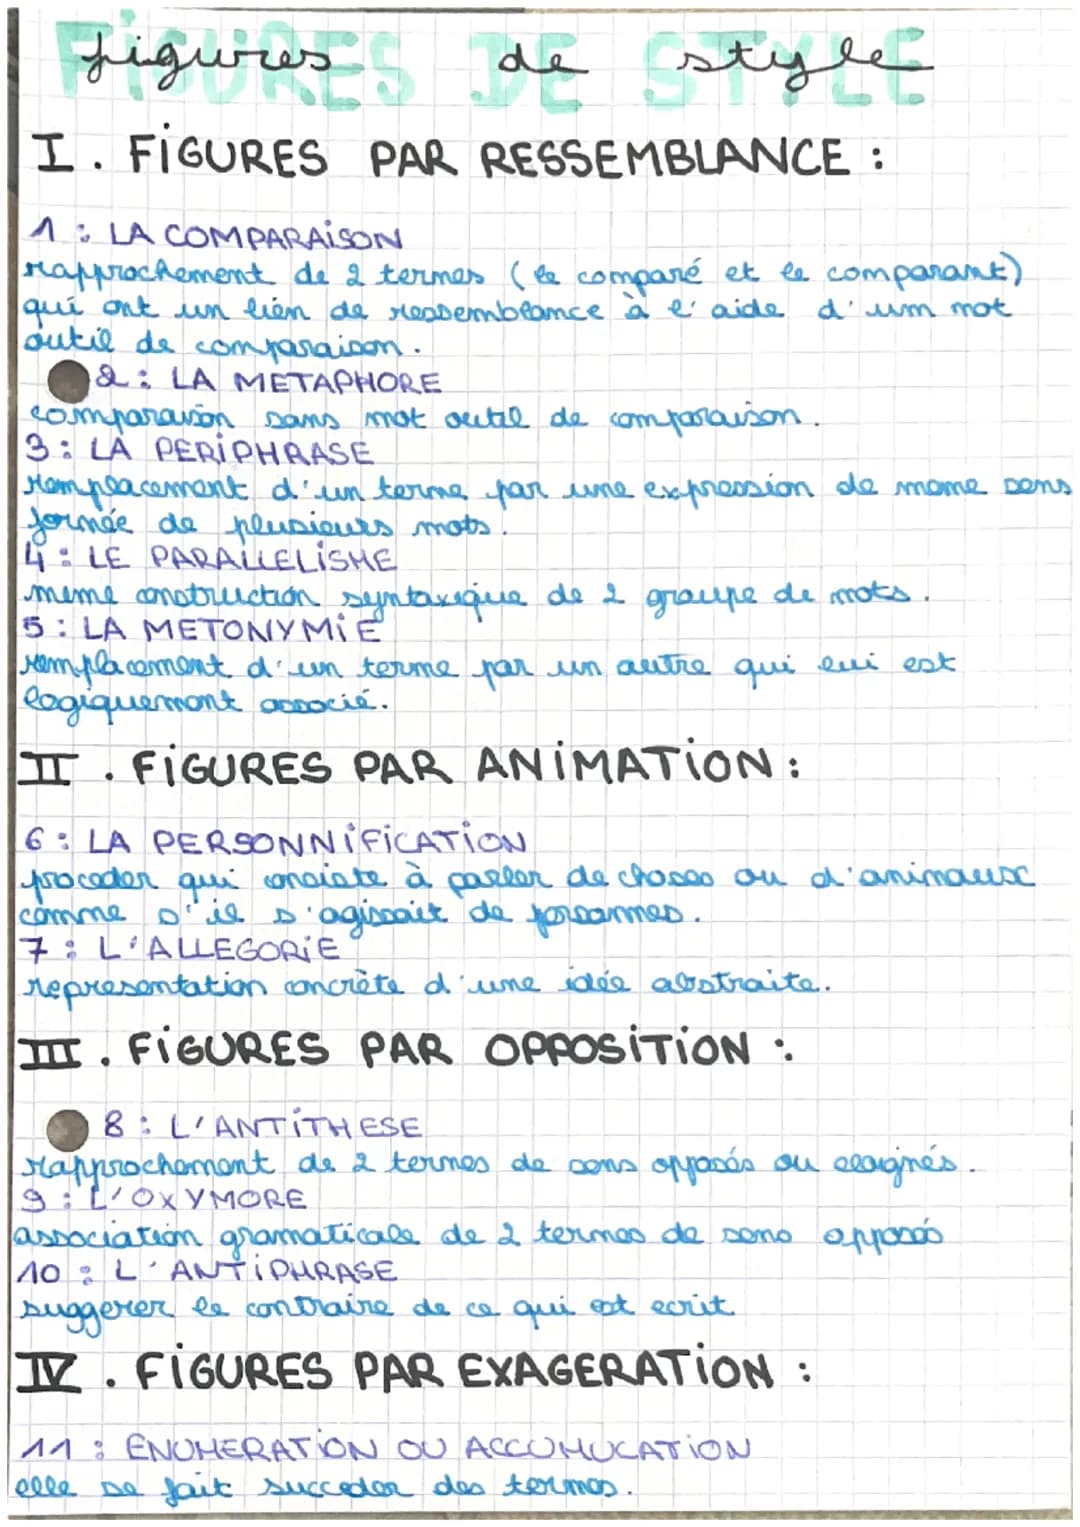 FIGURES DE STYLE
figures de style
I. FIGURES PAR RESSEMBLANCE :
1 : LA COMPARAISON
rapprochement de 2 termes (le comparé et le comparant)
qui ont un lien de ressemblance à l'aide d'um mot
outil de comparaison.
2 : LA METAPHORE
comparaison sans mot outil de comparaison.
3 : LA PERIPHRASE
remplacement d'un terme par une expression de meme sens
formée de plusieurs mots.
4 : LE PARALLELISME
meme construction syntaxique de 2 groupe de mots.
5 : LA METONYMIE
remplacement d'un terme par un autre qui lui est
logiquement associé.
II. FIGURES PAR ANIMATION :
6 : LA PERSONNIFICATION
proceder qui consiste à parler de choses ou d'animaux
comme s'il s'agissait de personnes.
7 : L'ALLEGORIE
representation concrète d'une idée abstraite.
III. FIGURES PAR OPPOSITION :
8 : L'ANTITHESE
rapprochement de 2 termes de sens opposés ou eloignés.
9 : L'OXYMORE
association gramaticale de 2 termes de sens opposés
10 : L'ANTIPHRASE
suggerer le contraire de ce qui est ecrit
IV. FIGURES PAR EXAGERATION :
11 : ENUMERATION OU ACCUMUCATION
elle se fait succeder des termes.